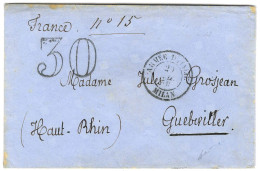 France nº 15
30
Madame Jules Grosjean
MILAN
Guebwiller
(Haut-Rhin)